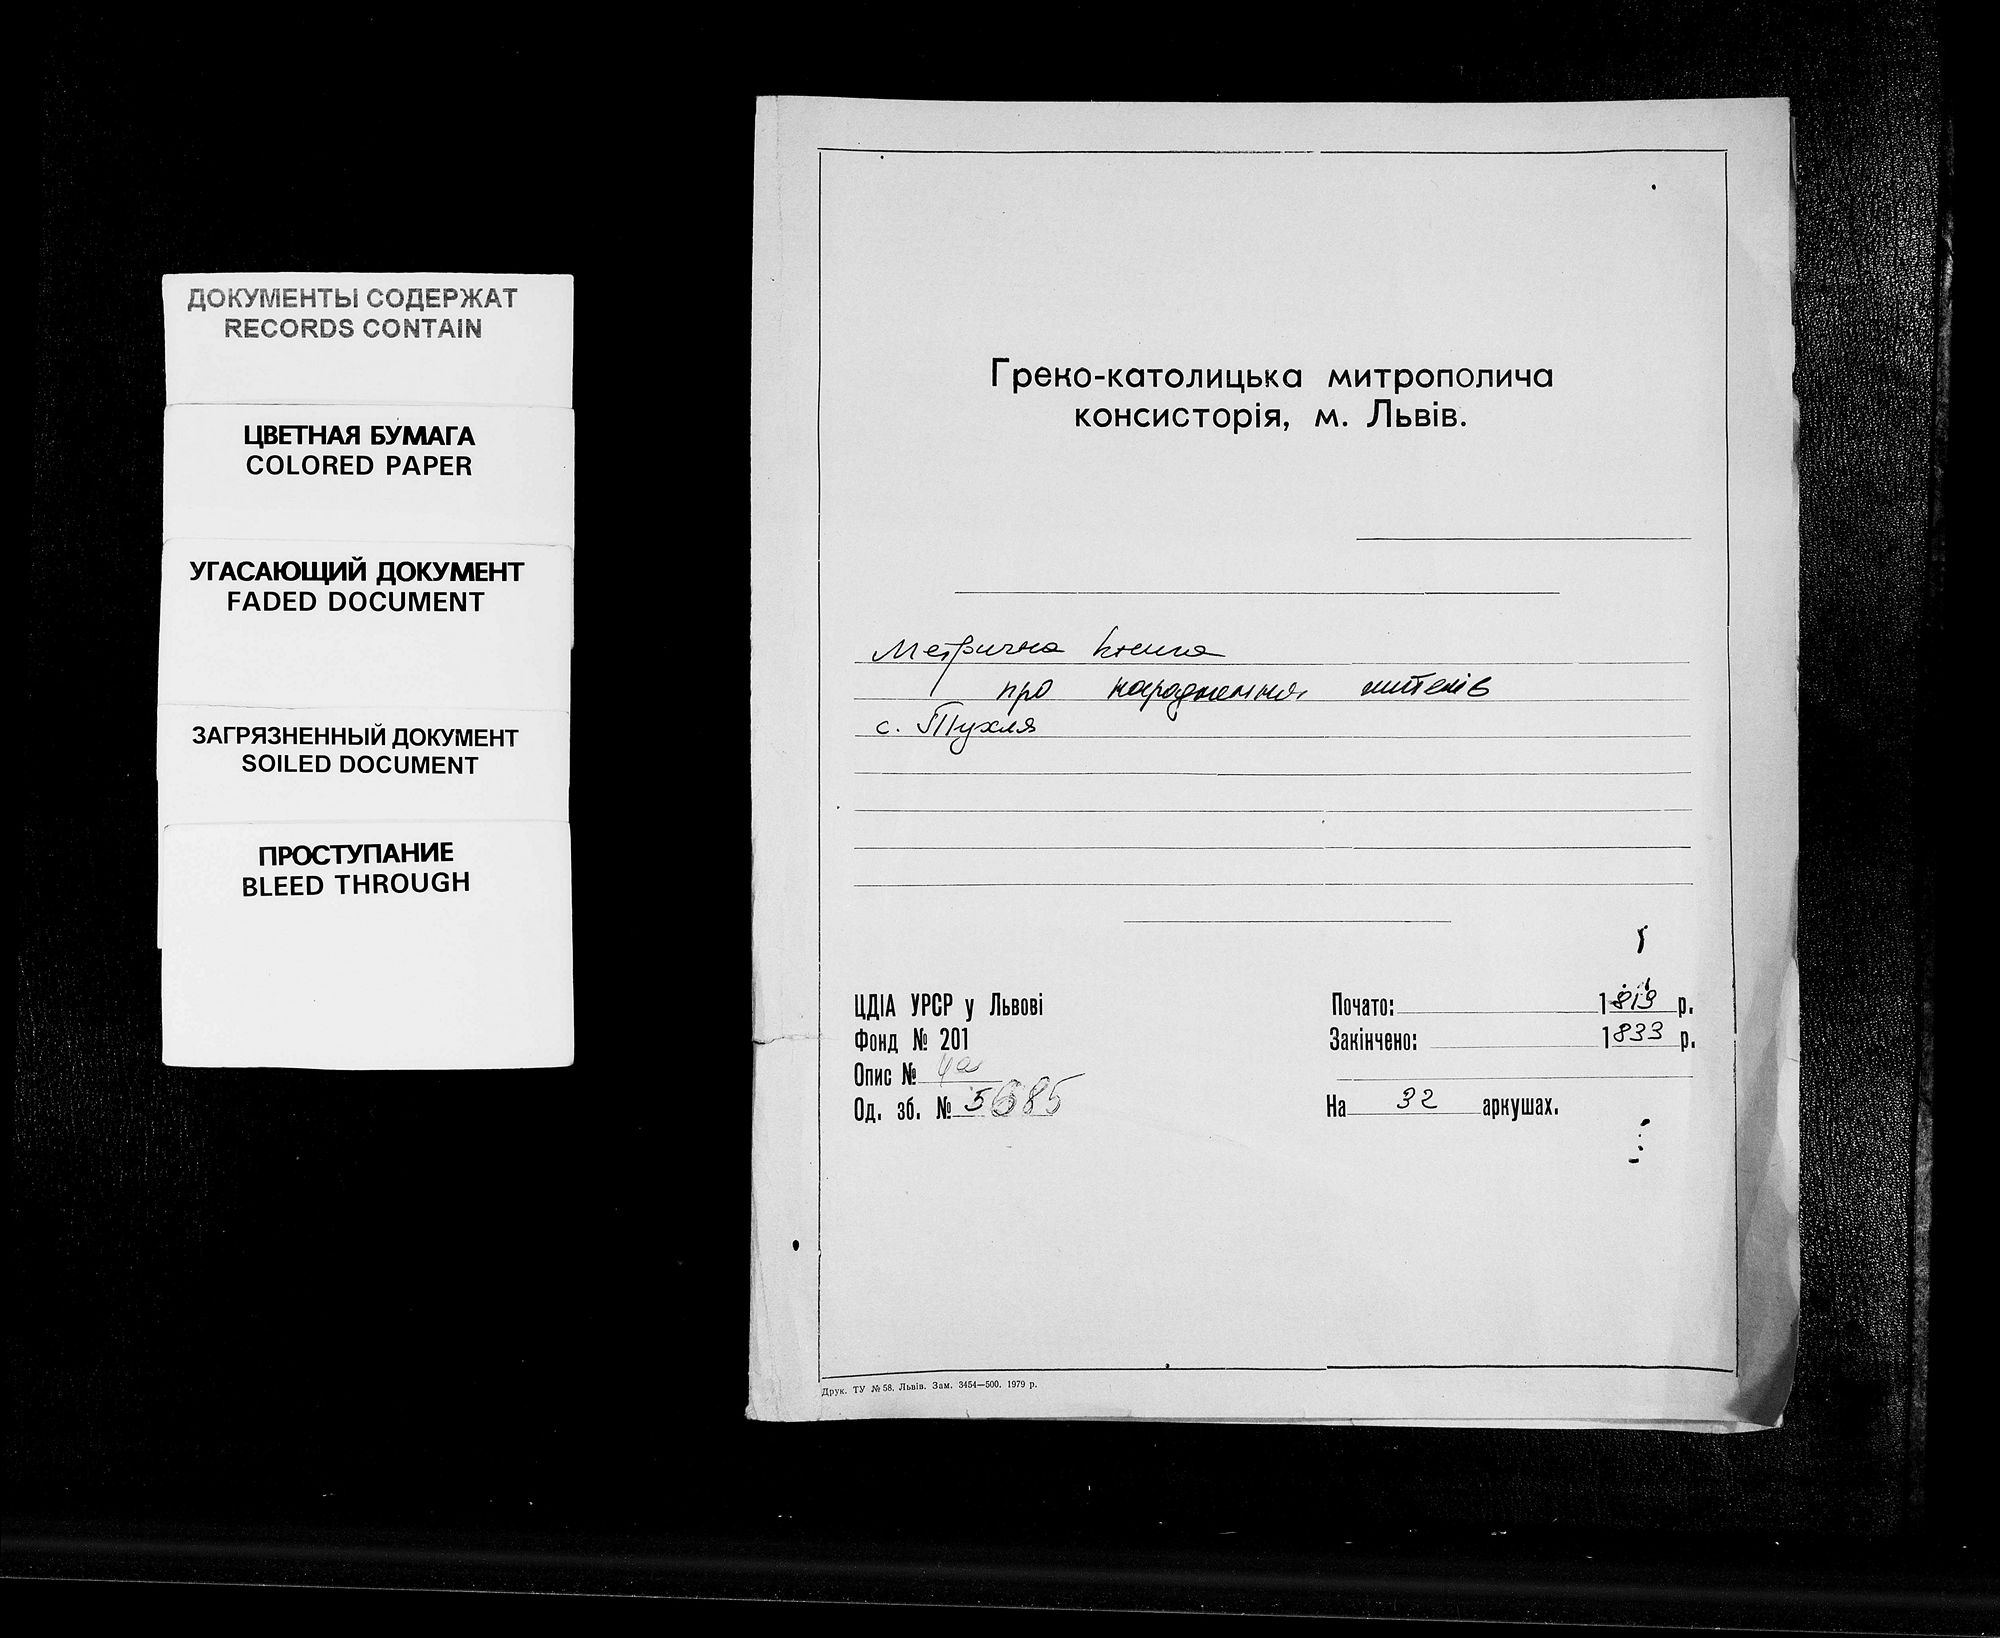 ДОКУМЕНТЫ СОДЕРЖАТ
RECORDS CONTAIN
ЦВЕТНАЯ БУМАГА
COLORED PAPER
УГАСАЮЩИЙ ДОКУМЕНТ
FADED DOCUMENT
ЗАГРЯЗНЕННЫЙ ДОКУМЕНТ
SOILED DOCUMENT
ПРОСТУПАНИЕ
BLEED THROUGH
Греко-католицька митрополича
консисторія, м. Львів.
Метрична книга
про народження жителів
с. Тухля
ЦДІА УРСР у Львові
Фонд № 201
Опис № 4а
Од. зб. № 5685
Почато: 1819 р.
Закінчено: 1833 р.
На 32 аркушах.
Друк. ТУ № 58. Львів. Зам. 3454—500. 1979 р.